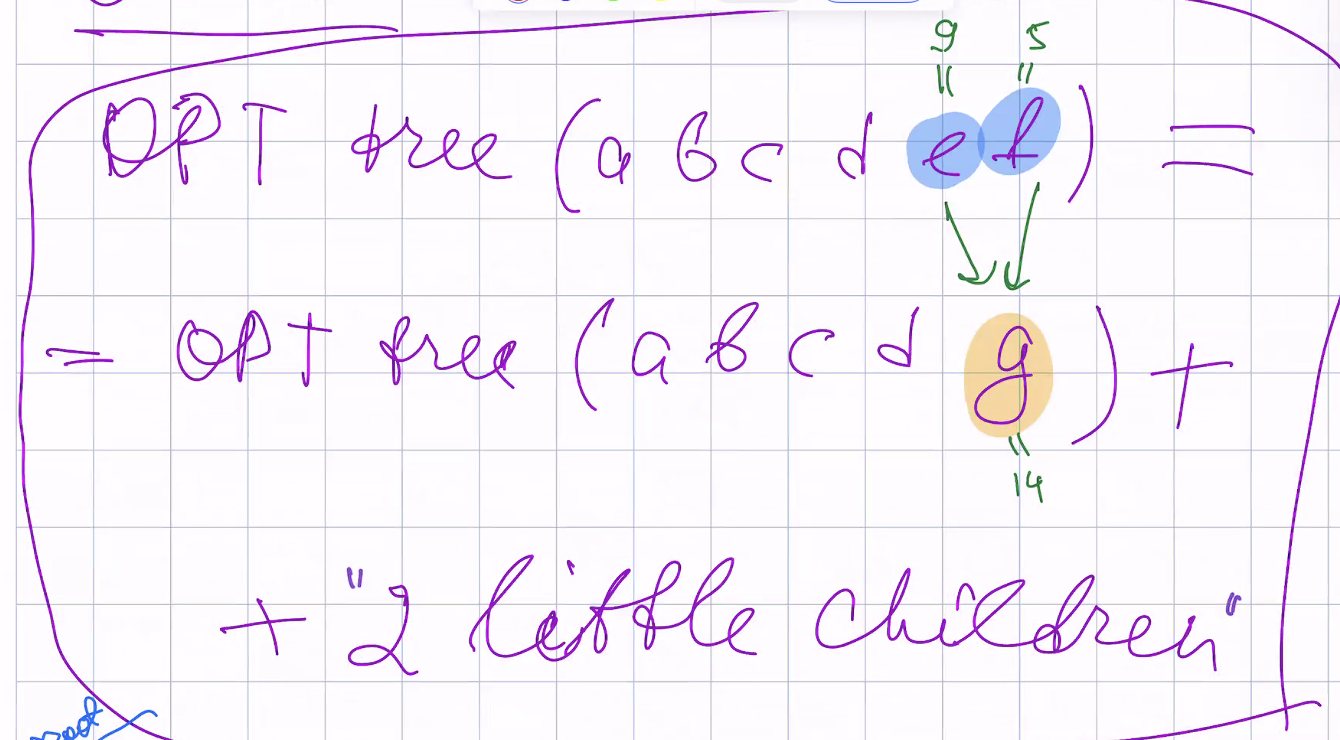 9 5
" "
OPT tree (a b c d e f) =
= OPT tree (a b c d g) +
"
14
+ "2 little children"
root